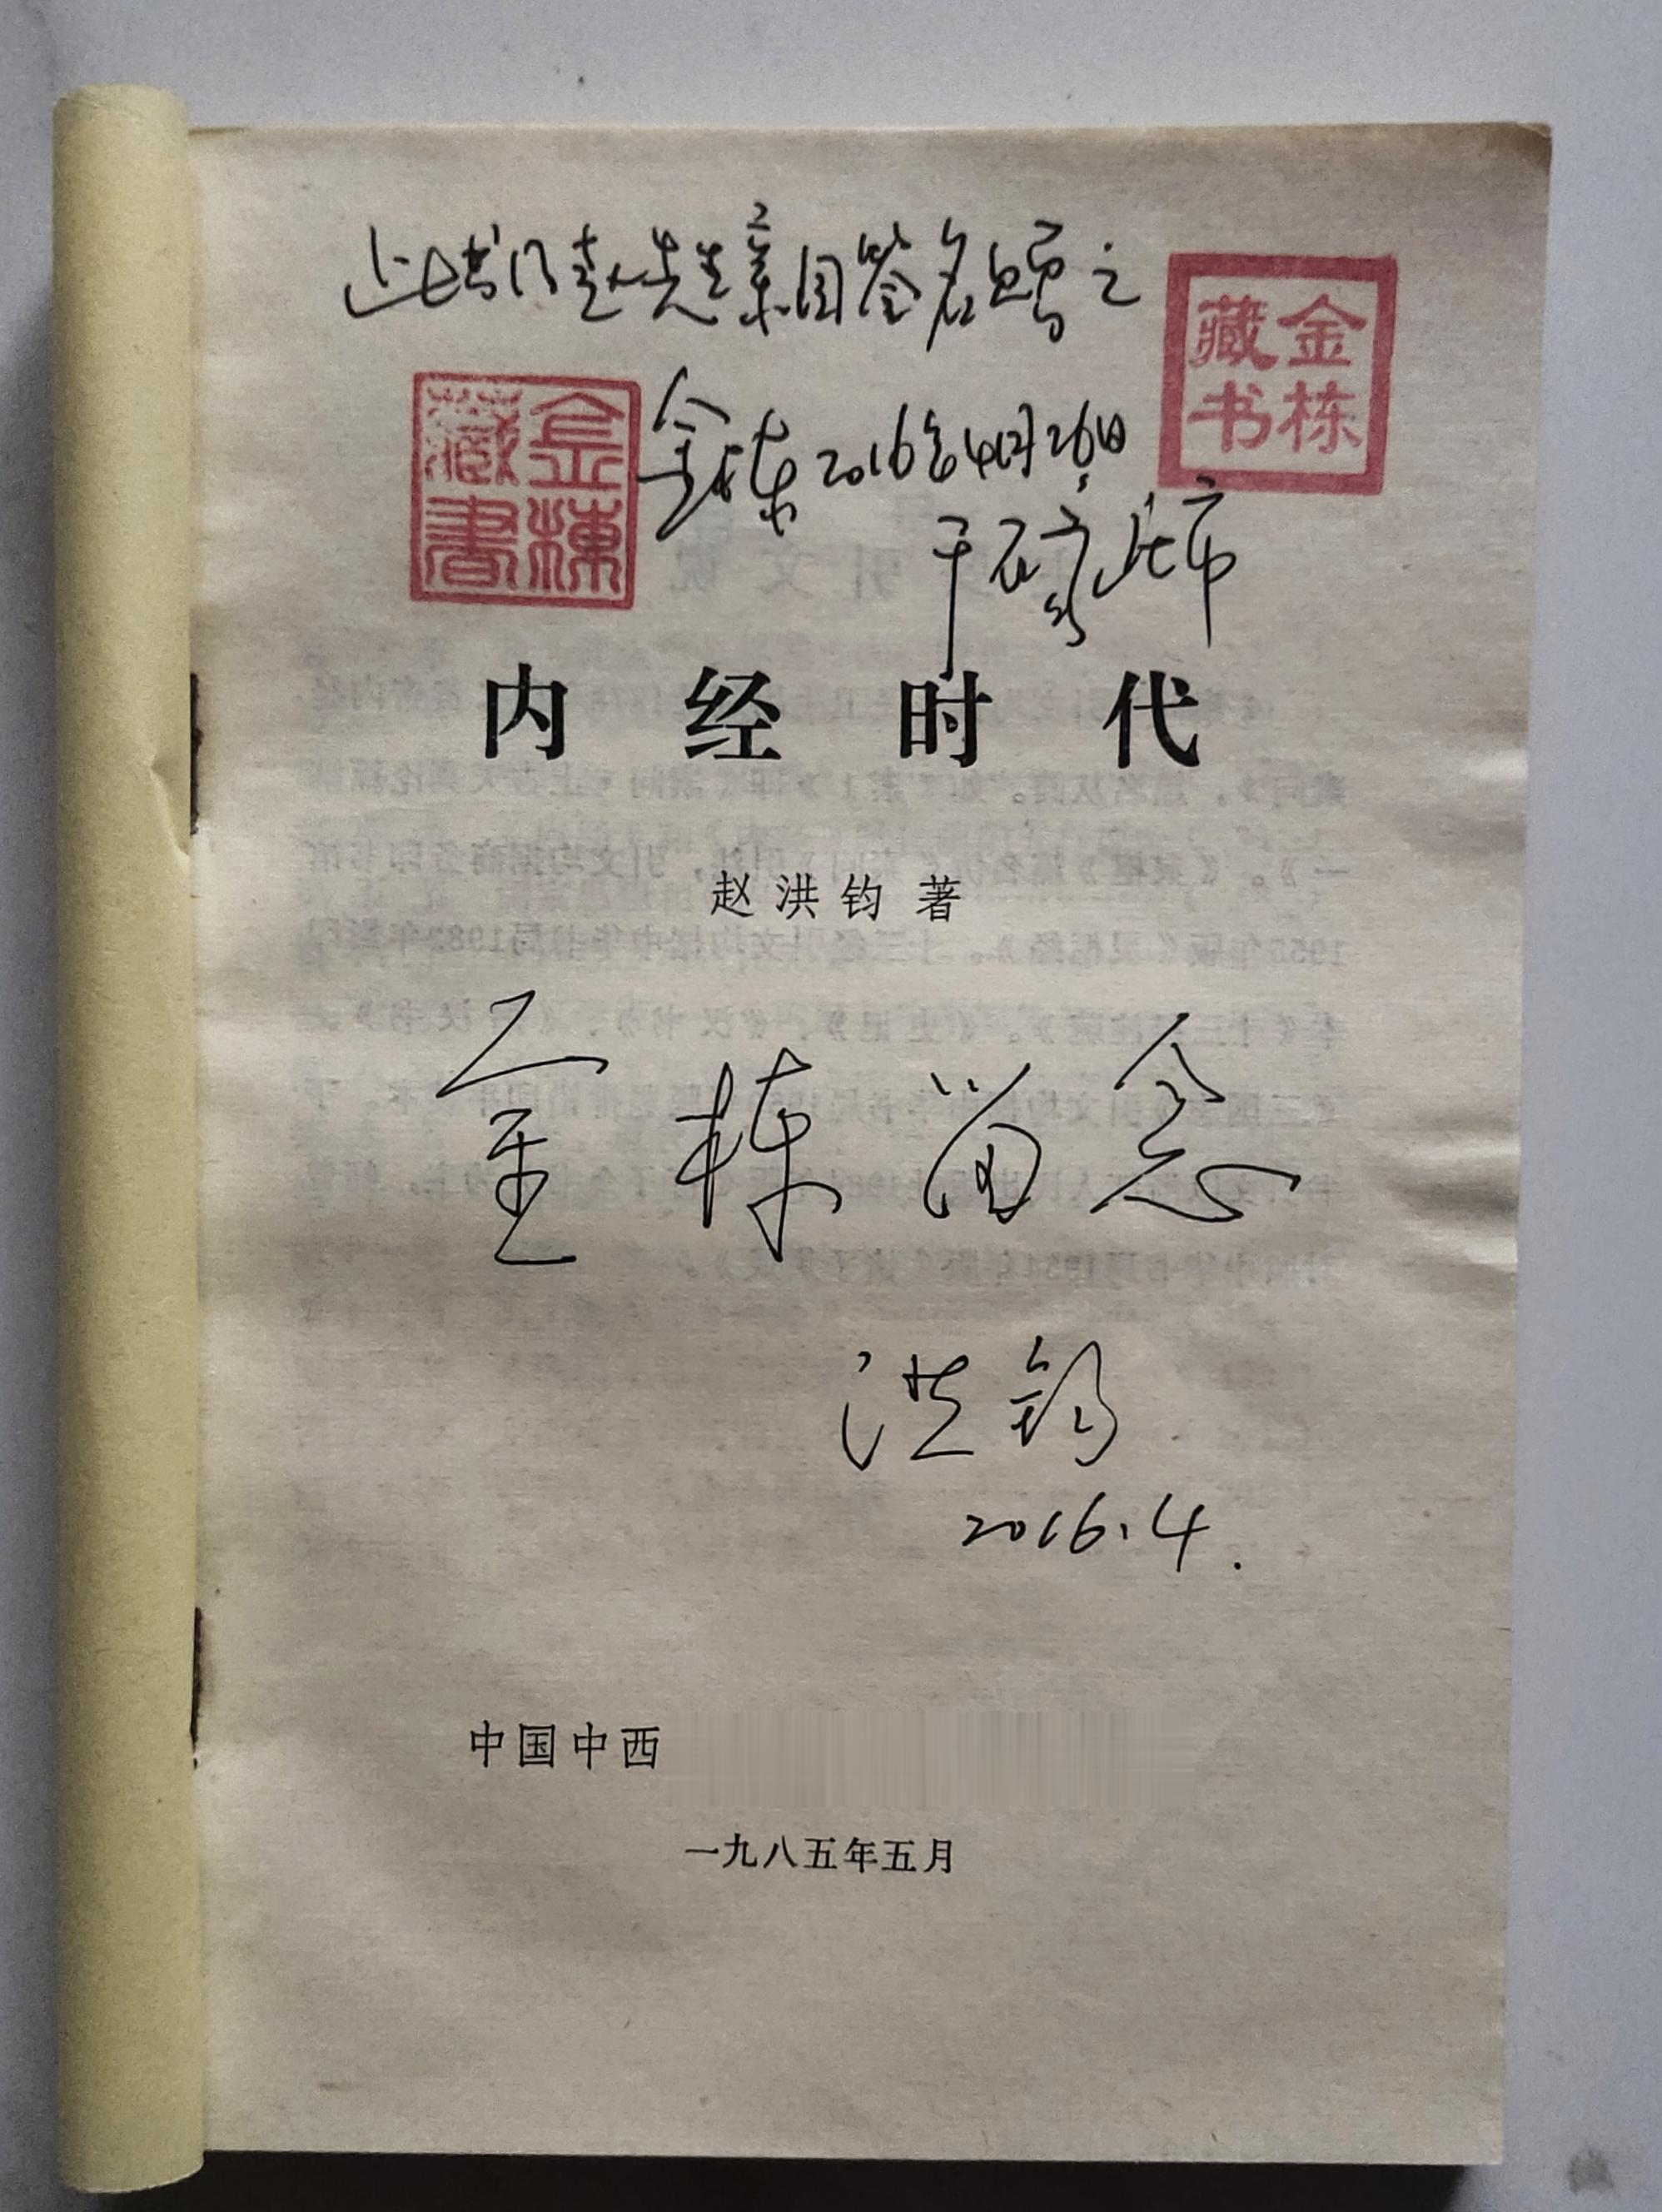 此书乃赵先生亲自签名赠之
金栋
藏书
金棟
藏書
金栋 2016年4月26日
于石家庄市
内经时代
赵洪钧 著
金栋留念
洪钧
2016.4.
中国中西
一九八五年五月